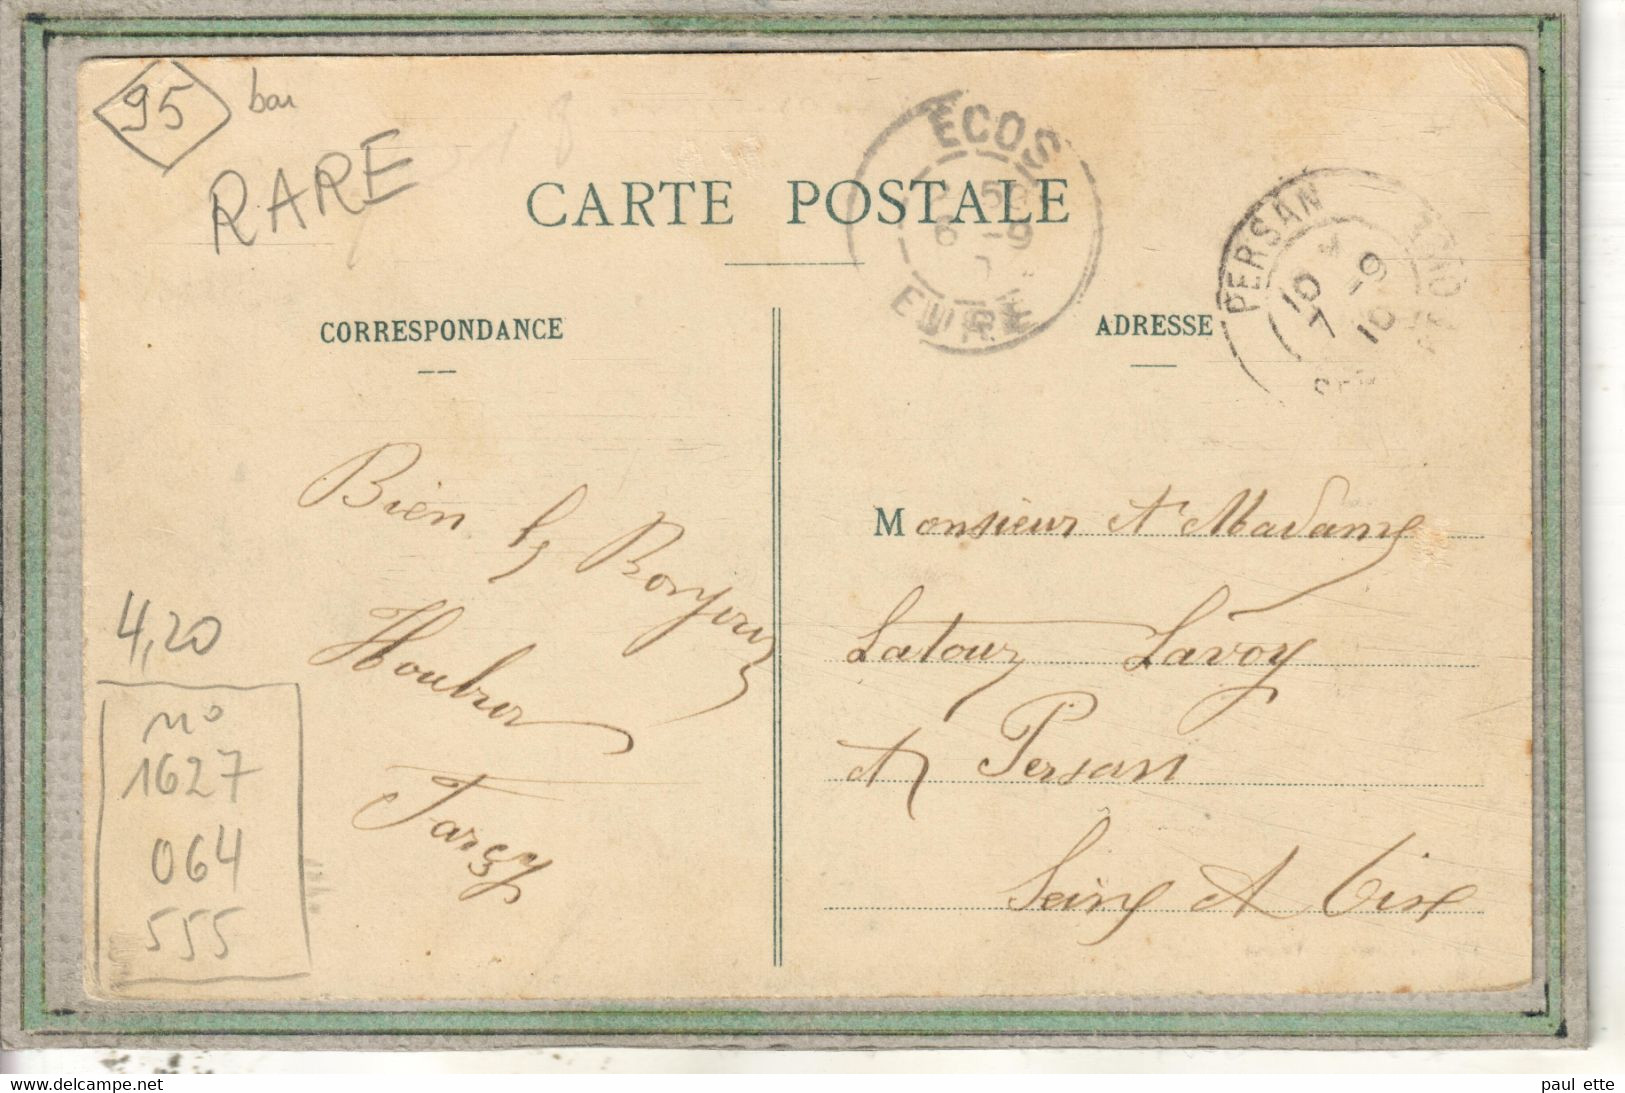 95
bar
RARE
ECOS
6 -9
EURE
PERSAN
10 7-9
10
CARTE POSTALE
CORRESPONDANCE
ADRESSE
Bien
Bonjour
Tarszy
Monsieur et Madame
Latour Lavoy
A Persan
Seine et Oise
4,20
no
1627
064
555
delcampe.net
paul ette